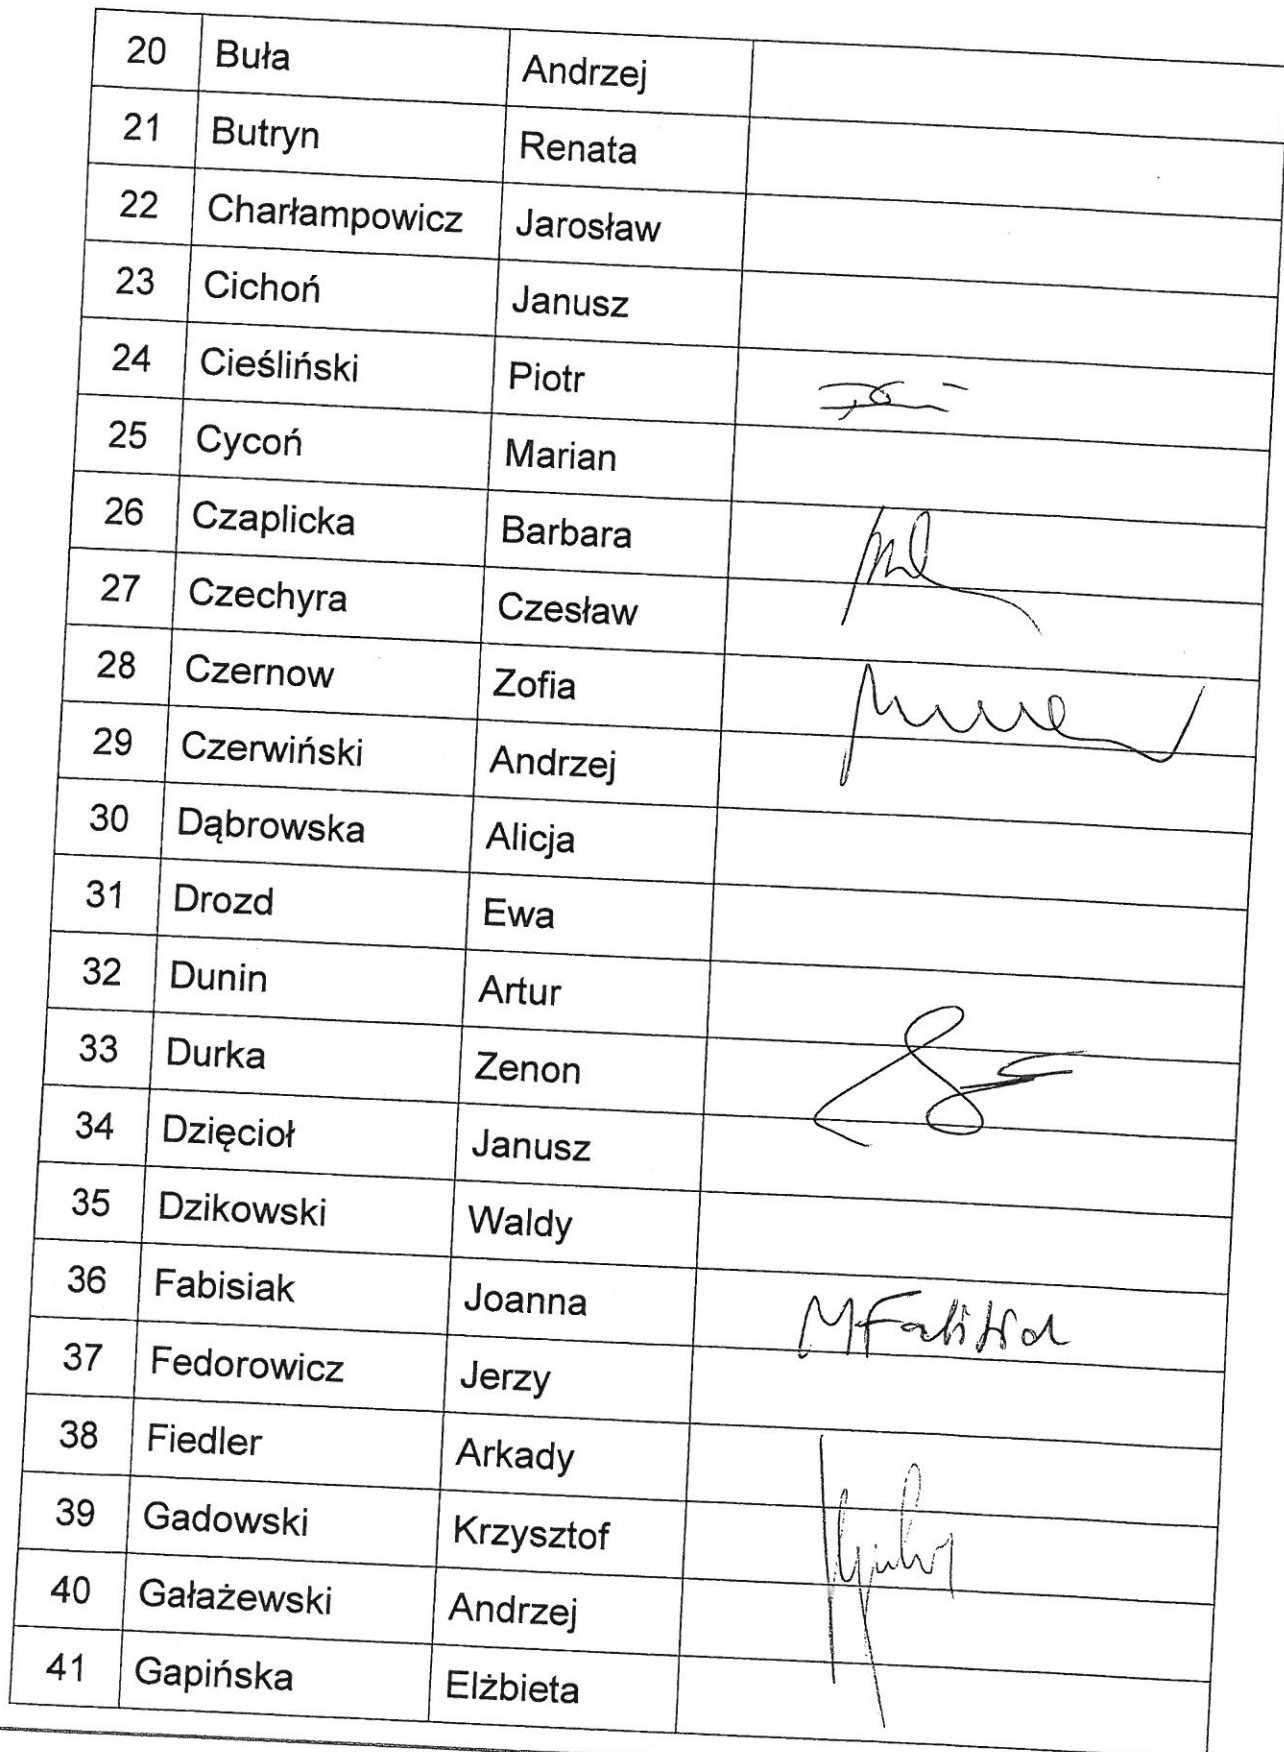 20 Buła Andrzej
21 Butryn Renata
22 Charłampowicz Jarosław
23 Cichoń Janusz
24 Cieśliński Piotr
25 Cycoń Marian
26 Czaplicka Barbara
27 Czechyra Czesław
28 Czernow Zofia
29 Czerwiński Andrzej
30 Dąbrowska Alicja
31 Drozd Ewa
32 Dunin Artur
33 Durka Zenon
34 Dzięcioł Janusz
35 Dzikowski Waldy
36 Fabisiak Joanna
37 Fedorowicz Jerzy
38 Fiedler Arkady
39 Gadowski Krzysztof
40 Gałażewski Andrzej
41 Gapińska Elżbieta